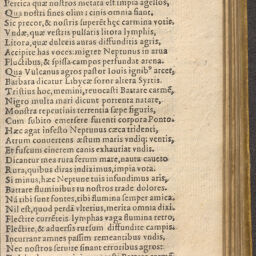 Perfida quæ nostros metata est impia agellos,
Quin nostri fines olim: cinis omnia fiant,
Sic precor, & nostris superēt hęc carmina votis.
Vndæ, quæ vestris pulsatis litora lymphis,
Litora, quæ dulceis auras diffunditis agris,
Accipite has voces: migret Neptunus in arua
Fluctibus, & spissa campos perfundat arena.
Qua Vulcanus agros pastor Iouis ignibº arcet,
Barbara dicatur Libycæ soror altera Syrtis.
Tristius hoc, memini, reuocasti Battare carmē,
Nigro multa mari dicunt portenta natare,
Monstra repentinis terrentia sæpe figuris,
Cum subito emersere furenti corpora Ponto.
Hæc agat infesto Neptunus cæca tridenti,
Atrum conuertens æstum maris vndiq; ventis,
Et fuscum cinerem canis exhauriat vndis.
Dicantur mea rura ferum mare, nauta caueto
Rura, quibus diras indiximus, impia vota.
Si minus, hæc Neptune tuis infundimus aureis,
Battare fluminibus tu nostros trade dolores.
Nā tibi sunt fontes, tibi flumina semper amica.
Nil est, quod perdā vlterius, merita omnia dixi.
Flectite currēteis lymphas vaga flumina retro,
Flectite, & aduersis rursum diffundite campis:
Incurrant amnes passim remeantibus vndis,
Nec nostros seruire sinant erronibus agros.